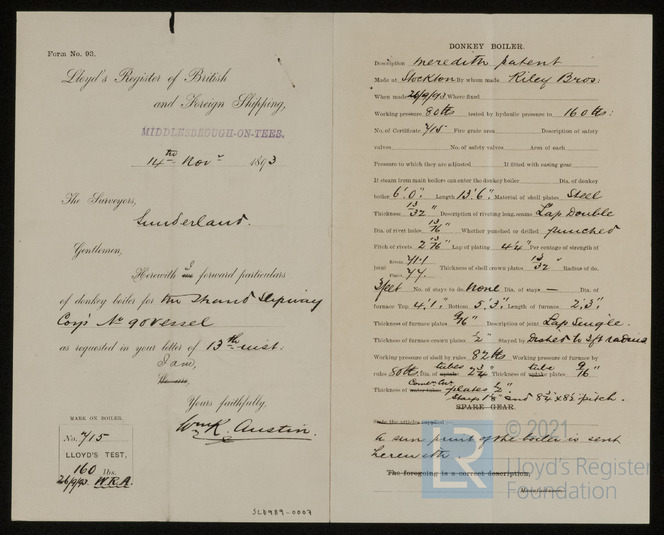 Form No. 93.
Lloyd's Register of British
and Foreign Shipping,
MIDDLESBROUGH-ON-TEES,
14th Novr 1893
The Surveyors,
Sunderland.
Gentlemen,
Herewith I forward particulars
of donkey boiler for the Strand Slipway
Corps No 90 vessel
as requested in your letter of 13th inst:
I am,
Yours faithfully,
Wm R. Austin.
MARK ON BOILER.
No. 715
LLOYD'S TEST,
160 lbs.
26/9/93. W.R.A.
SLB989-0007
DONKEY BOILER.
Description Meredith patent
Made at Stockton By whom made Riley Bros:
When made 26/9/93 Where fixed
Working pressure 80lbs tested by hydraulic pressure to 160lbs:
No. of Certificate 715 Fire grate area Description of safety
valves No. of safety valves Area of each
Pressure to which they are adjusted If fitted with easing gear
If steam from main boilers can enter the donkey boiler Dia. of donkey
boiler 6'.0" Length 13'.6" Material of shell plates Steel
Thickness 13/32" Description of riveting long. seams Lap Double
Dia. of rivet holes 13/16" Whether punched or drilled punched
Pitch of rivets 2 13/16" Lap of plating 4¼" Per centage of strength of
joint Rivets 71.1 Plates 77. Thickness of shell crown plates 13/32" Radius of do.
3 feet No. of stays to do. None Dia. of stays — Dia. of
furnace Top 4'.1" Bottom 5'.3" Length of furnace 2'.3"
Thickness of furnace plates 9/16" Description of joint Lap Single.
Thickness of furnace crown plates ½" Stayed by Dished to 3ft radius
Working pressure of shell by rules 82lbs Working pressure of furnace by
rules 80lbs. Dia. of uptake tubes 2¾" Thickness of uptake tube plates 9/16"
Thickness of water tubes plates ½"
Stays 1⅛" and 8¾ x 8½ pitch.
SPARE GEAR.
State the articles supplied
A sun print of the boiler is sent
herewith.
The foregoing is a correct description,
Manufacturer.
© 2021
LR
Lloyd's Register
Foundation